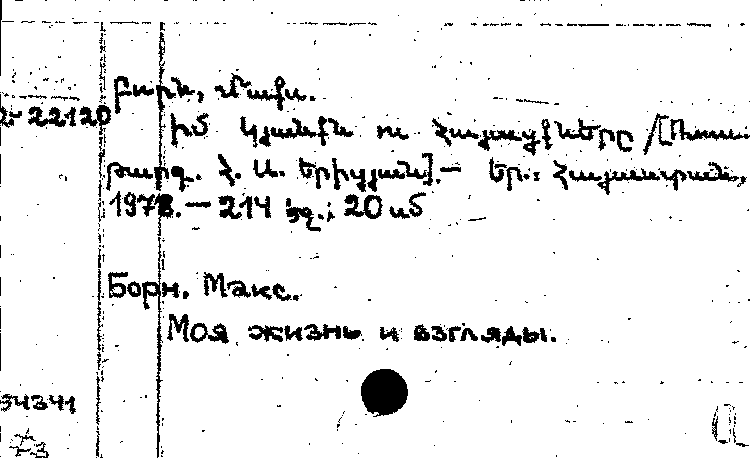 Բորն, Մաքս.
2-22120
Իմ կյանքն ու հայացքները /[Ռուս.
թարգ. Հ. Ա. Երիցյան].— Եր.: Հայաստան,
1973.— 214 էջ.; 20 սմ
Борн, Макс.
Моя жизнь и взгляды.
54341